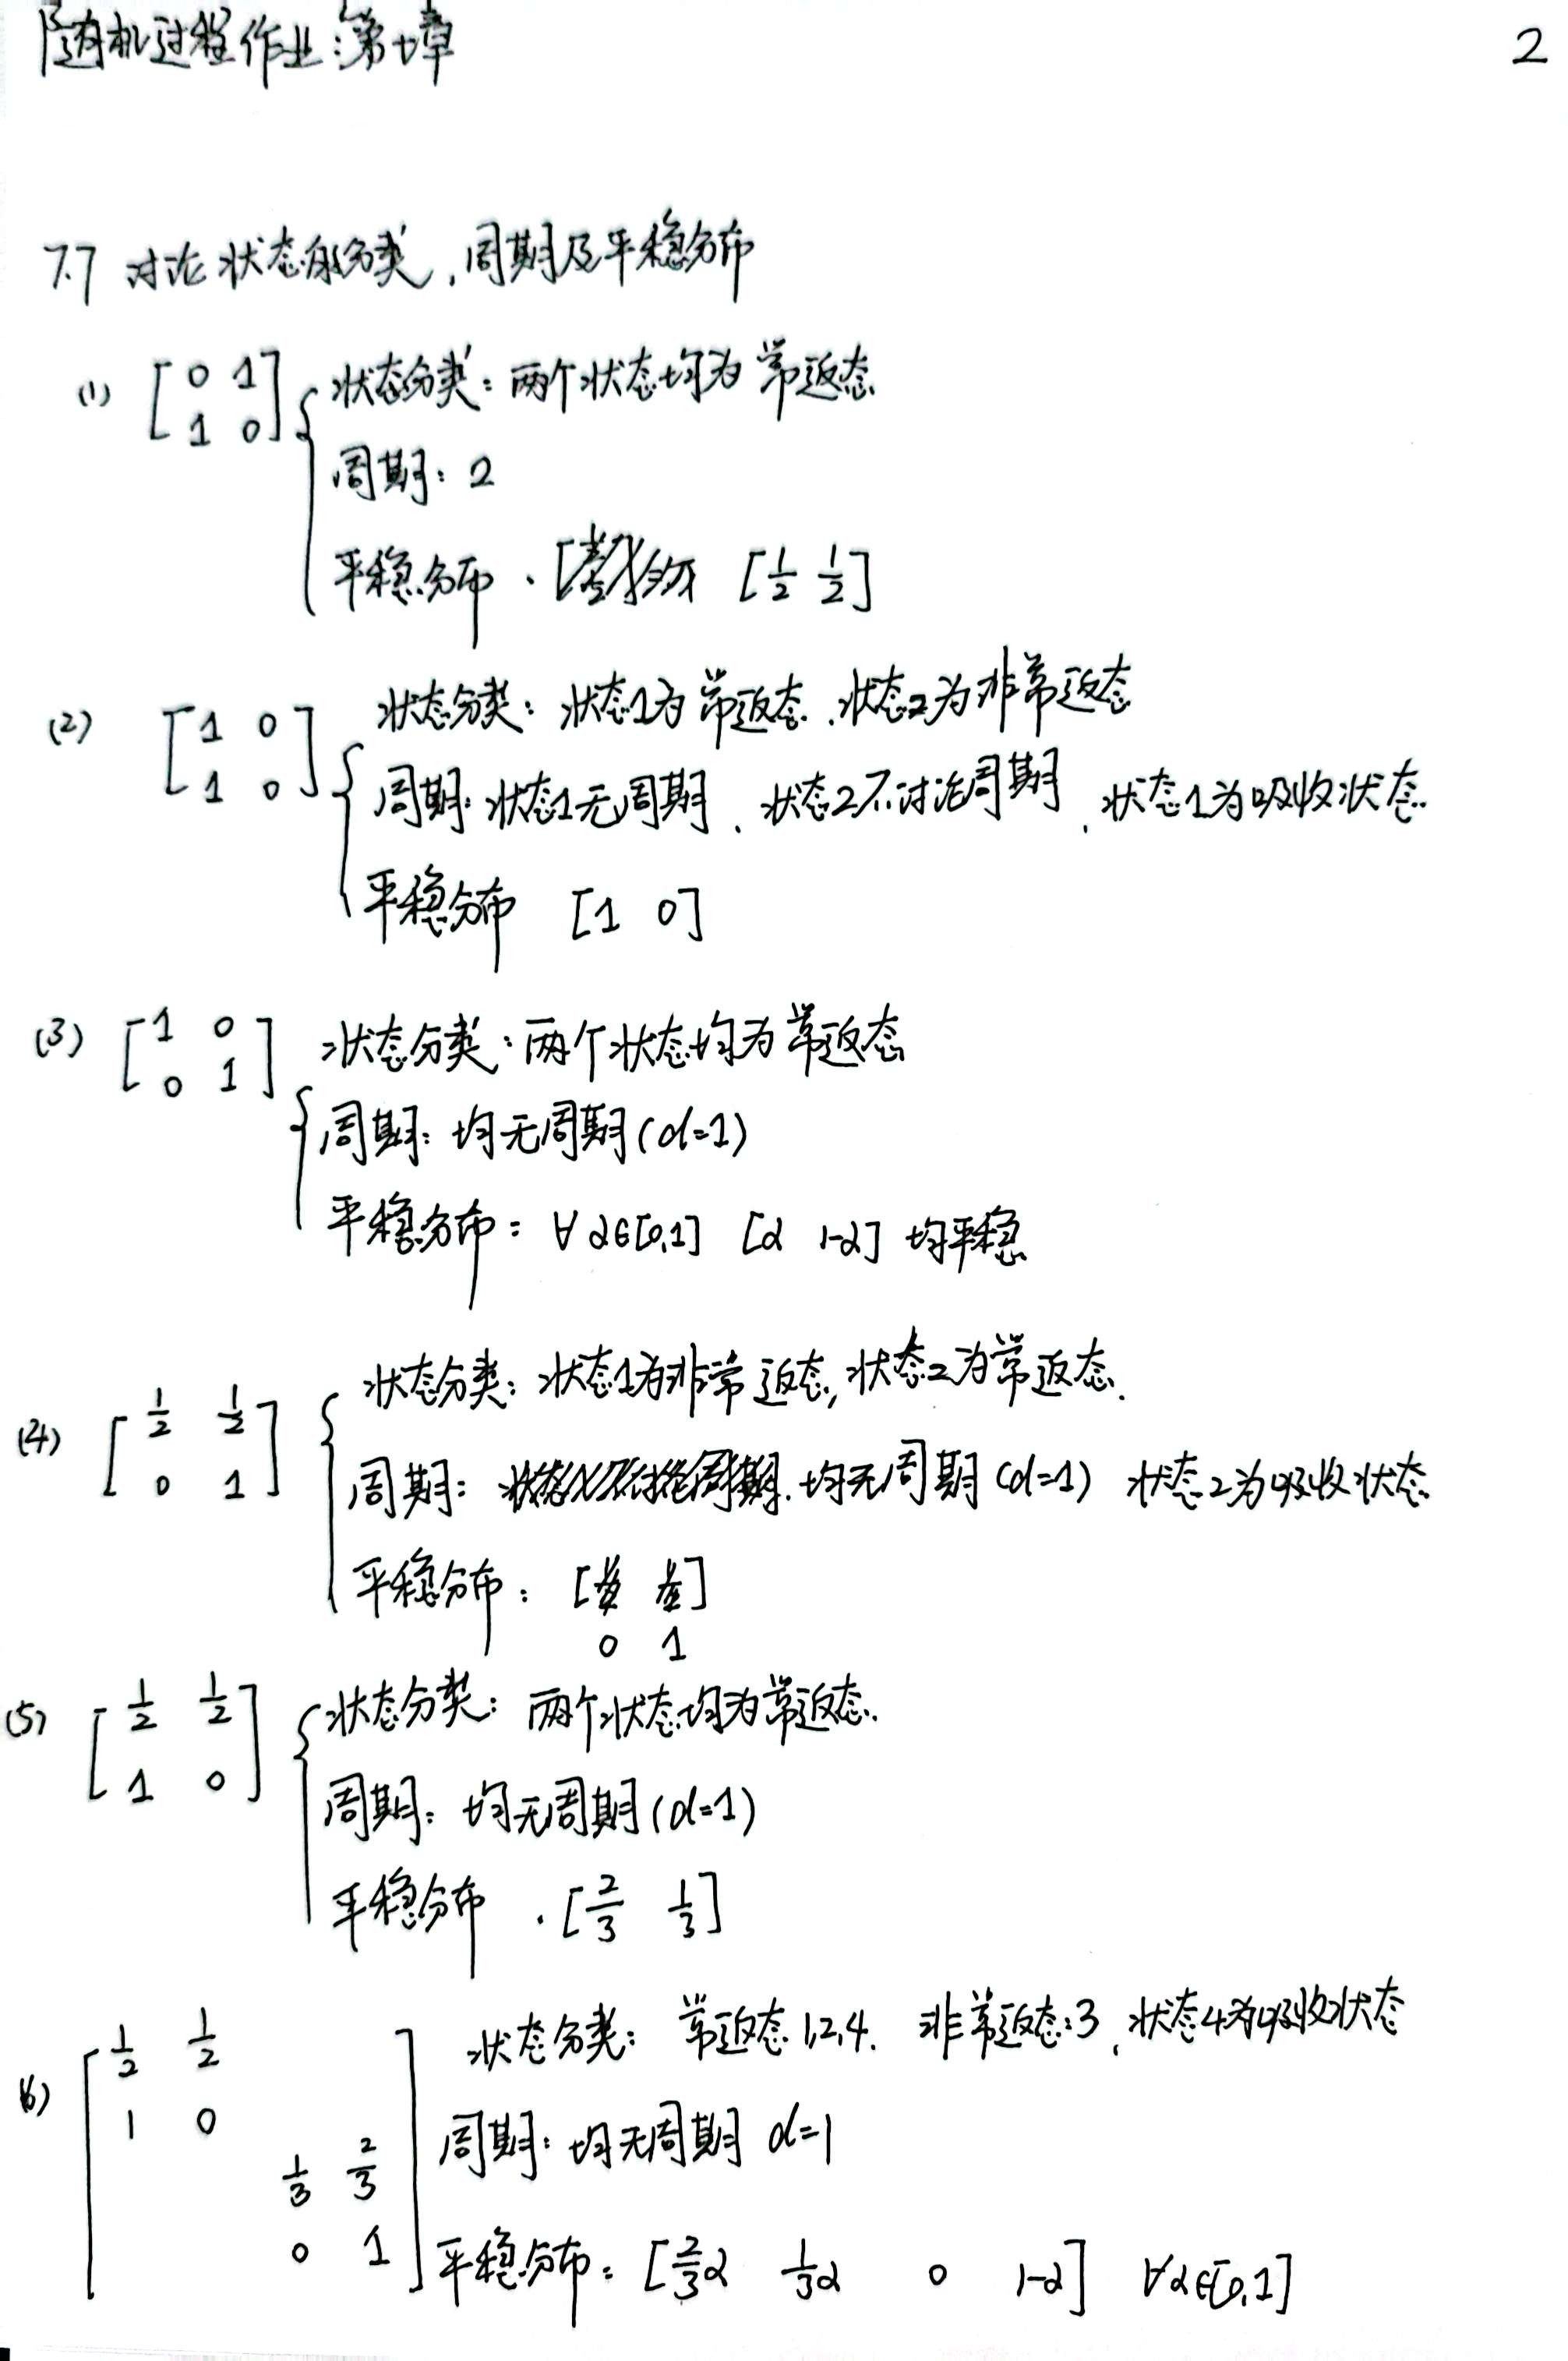 随机过程作业:第七章 2
7.7 讨论状态的分类,周期及平稳分布
(1) [0 1
1 0]
状态分类:两个状态均为常返态
周期:2
平稳分布 · [1/2 1/2]
(2) [1 0
1 0]
状态分类:状态1为常返态,状态2为非常返态
周期:状态1无周期,状态2不讨论周期,状态1为吸收状态.
平稳分布 [1 0]
(3) [1 0
0 1]
状态分类:两个状态均为常返态
周期:均无周期(d=1)
平稳分布:∀α∈[0,1] [α 1-α] 均平稳
(4) [1/2 1/2
0 1]
状态分类:状态1为非常返态,状态2为常返态.
周期:均无周期(d=1) 状态2为吸收状态
平稳分布:[ ]
0 1
(5) [1/2 1/2
1 0]
状态分类:两个状态均为常返态.
周期:均无周期(d=1)
平稳分布 · [2/3 1/3]
(6) [1/2 1/2
1 0
1/3 2/3
0 1]
状态分类:常返态1,2,4. 非常返态:3,状态4为吸收状态
周期:均无周期 d=1
平稳分布:[2/3α 1/3α 0 1-α] ∀α∈[0,1]